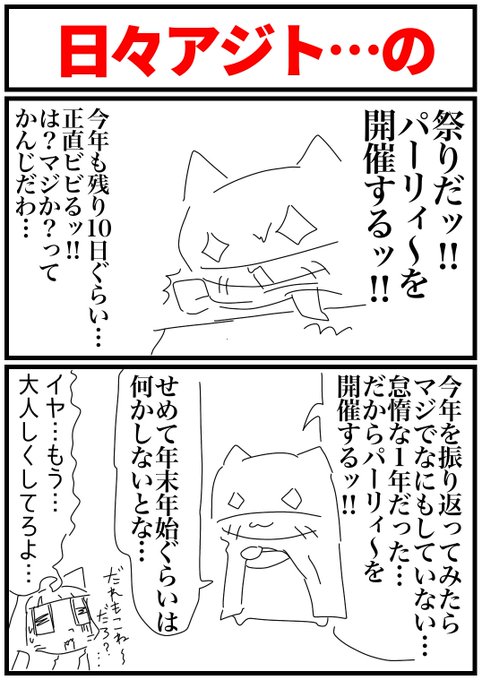 日々アジト…の
祭りだッ!!
パーリィ～を
開催するッ!!
今年も残り10日ぐらい…
正直ビビるッ!!
は？マジか？って
かんじだわ…
今年を振り返ってみたら
マジでなにもしていない…
怠惰な１年だった…
だからパーリィ～を
開催するッ!!
せめて年末年始ぐらいは
何かしないとな…
イヤ…もう…
大人しくしてろよ…
だれもこね～
だろ？…